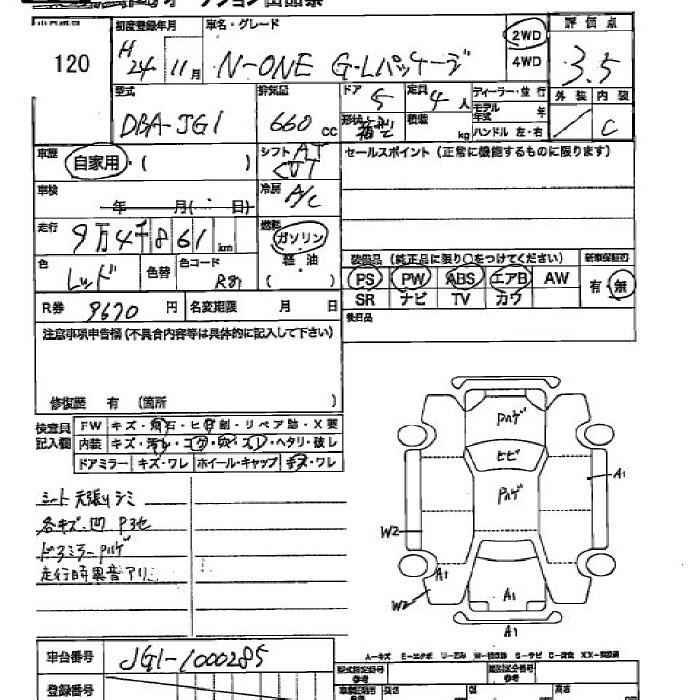 初度登録年月 車名・グレード 評価点
120 H24 11月 N-ONE G・Lパッケージ 2WD 4WD 3.5
型式 排気量 ドア 定員 ディーラー・並行 外装 内装
DBA-JG1 660 CC 5 4人 モデル年式 年
形状 積載 kg ハンドル 左・右 / C
車歴 自家用・( ) シフト AT CVT セールスポイント (正常に機能するものに限ります)
車検 年 月( ・ 日) 冷房 A/C
走行 9万4千861km 燃料 ガソリン 軽油 ( )
装備品 (純正品に限り○をつけてください) 新車保証書
色 レッド 色替 色コード R81 PS PW ABS エアB AW 有・無
SR ナビ TV カワ
R券 9670円 名変期限 月 日 後日品
注意事項申告欄 (不具合内容等は具体的に記入して下さい)
修復歴 有 (箇所 )
検査員記入欄 FW キズ・飛石・ヒビ割・リペア跡・X要
内装 キズ・汚れ・コゲ・穴・スレ・ヘタリ・破し
ドアミラー キズ・ワレ ホイール・キャップ キズ・ワレ
シート 天張りシミ
各キズ・凹 P3他
ドアミラーPハゲ
走行時異音アリ
Pハゲ
ヒビ
Pハゲ
A1
W2
A1
W2
A1
A1
車台番号 JG1-1000285
登録番号
型式指定番号 参考 類別区分番号 参考
長さ 幅 高さ